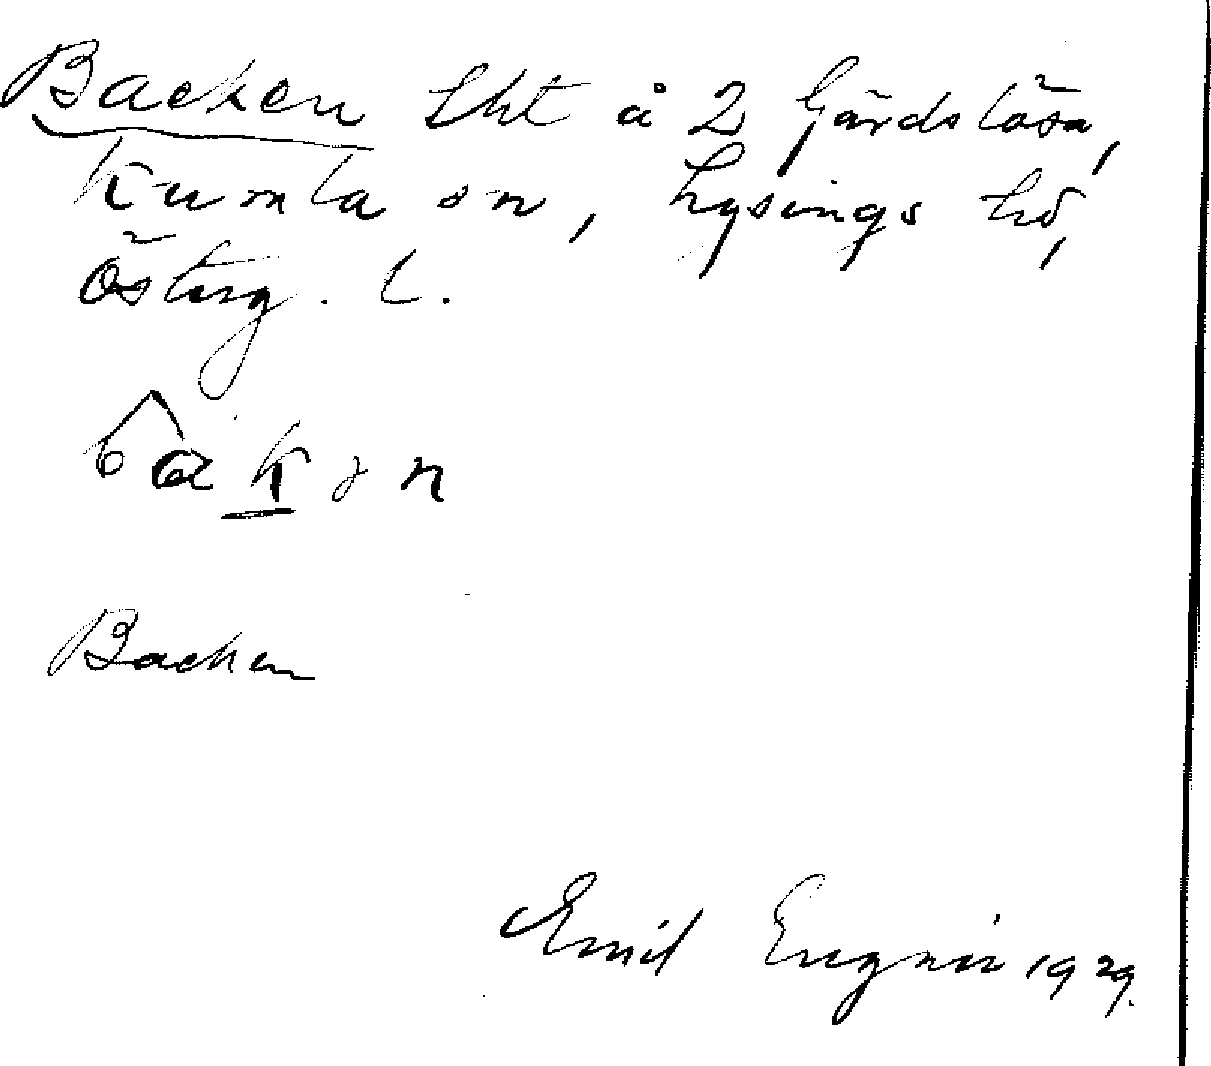 Backen Lht å 2 Gärdslösa,
Kumla sn, Lysings hd,
Österg. L.
bakən
Backen
Emil 1929.